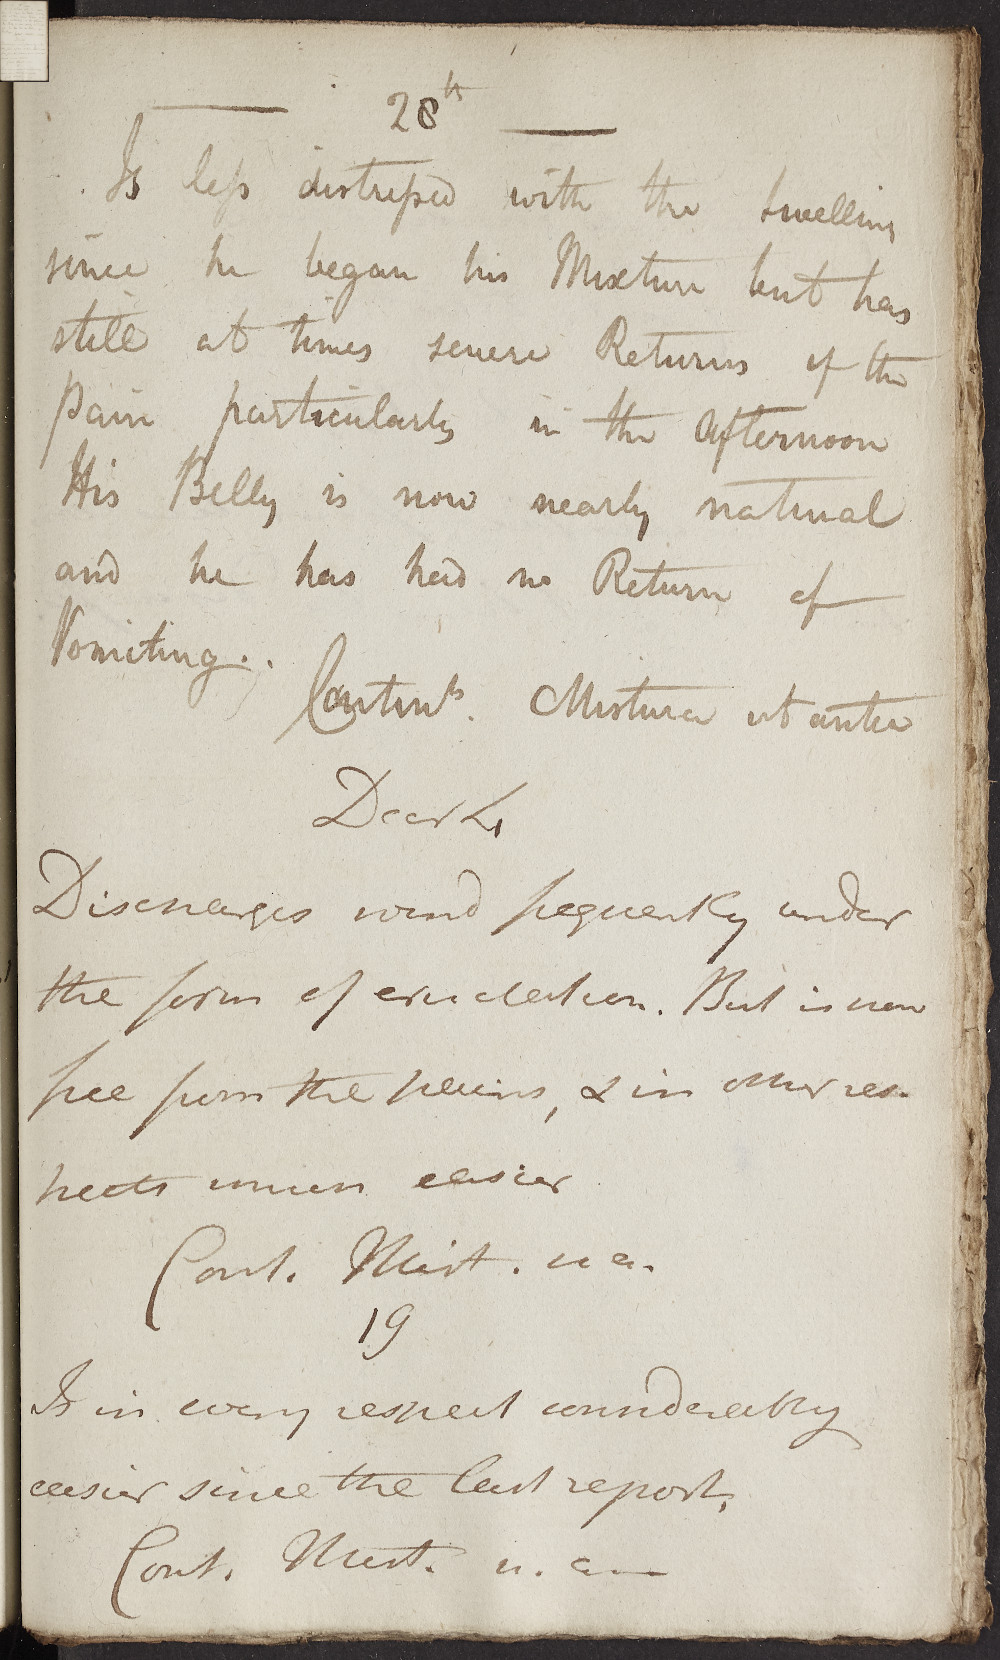 28th
Is less distressed with the swelling
since he began his Mixture but has
still at times severe Returns of the
Pain particularly in the afternoon
His Belly is now nearly natural
and he has had no Return of
Vomiting..
Continr. Mistura ut antea
Decr
Discharges wind frequently under
the form of eructation. But is now
free from the pains, & in other res-
pects much easier
Cont. Mist. u a.
19
Is in every respect considerably
easier since the last report,
Cont. Mist. u. a